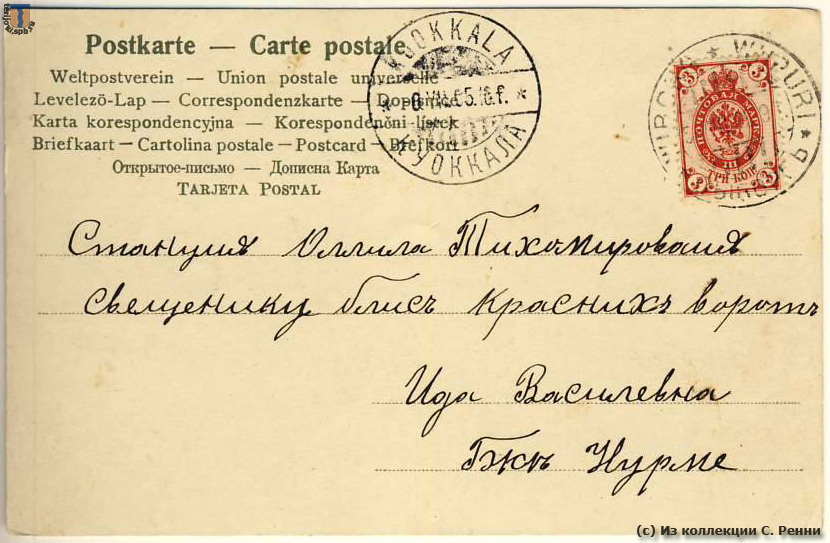 Postkarte — Carte postale
Weltpostverein — Union postale universelle
Levelezö-Lap — Correspondenzkarte — Dopisnice
Karta korespondencyjna — Korespondenčni listek
Briefkaart — Cartolina postale — Postcard — Brefkort
Открытое-письмо — Дописна Карта
TARJETA POSTAL
KUOKKALA
КУОККАЛА
WIIPURI
3 3
ПОЧТОВАЯ МАРКА
III
ТРИ КОП.
3 3
Станция Оллила Тихомированя
Свещенику блисъ Краснихъ воротъ
Ида Василевна
Гжъ Нурме
terijoki.spb.ru
(c) Из коллекции С. Ренни